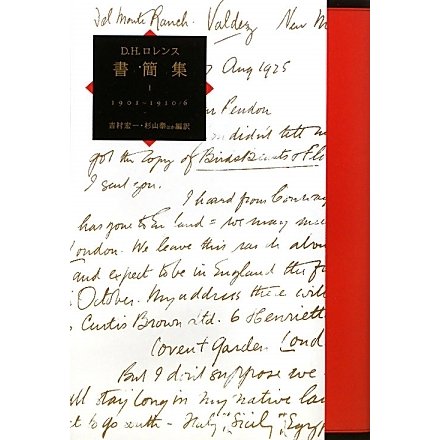 Del Monte Ranch. Valdez New M
D.H.ロレンス
書・簡集
I
1901~1910/6
吉村宏一・杉山泰ほか編訳
7 Aug 1925
Pendon
didn't tell me
got the copy of Birds Beasts & Flo
I sent you.
I heard from Conway
has gone to England = we may
London. We leave this ranch
and expect to be in England the
October. My address there will
Curtis Brown Ltd. 6 Henriette
Covent Garden. Lond
But I don't suppose we
all stay long in my native lan
to go south – Italy, Sicily, Egypt